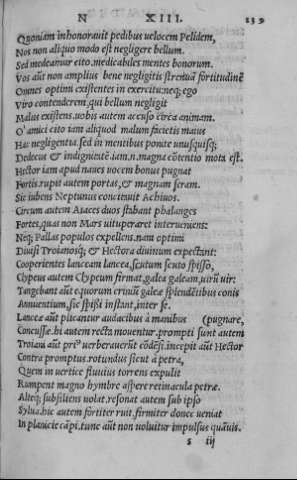 N XIII. 139
Quoniam inhonorauit pedibus uelocem Pelidem,
Nos non aliquo modo est negligere bellum.
Sed medeamur cito, medicabiles mentes bonorum.
Vos aũt non amplius bene negligitis strenuã fortitudinẽ
Omnes optimi existentes in exercitu: neq; ego
Viro contenderem, qui bellum negligit
Malus existens. uobis autem accuso circa animam.
O' amici cito iam aliquod malum facietis maius
Hac negligentia. sed in mentibus ponite unusquisq;
Dedecus & indignitatẽ iam. n. magna cõtentio mota est.
Hector iam apud naues uocem bonus pugnat
Fortis. rupit autem portas, & magnam seram.
Sic iubens Neptunus concitauit Achiuos.
Circum autem Aiaces duos stabant phalanges
Fortes, quas non Mars uituperaret interueniens:
Neq; Pallas populos expellens. nam optimi
Diuisi Troianosq; & Hectora diuinum expectant:
Cooperientes lanceam lancea, scutum scuto spisso,
Clypeus autem Clypeum firmat, galea galeam, uirũ uir:
Tangebant aũt equorum criniũ galeæ splendẽtibus conis
Annuentium, sic spissi instant, inter se.
Lanceæ aũt plicantur audacibus à manibus (pugnare,
Concussæ. hi autem recta mouentur. prompti sunt autem
Troiam aũt priº uerberauerũt cõdẽsi. incepit aũt Hector
Contra promptus. rotundus sicut à petra,
Quem in uertice fluuius torrens expulit
Rumpens magno hymbre asperæ retinacula petræ.
Alteq; subsiliens uolat. resonat autem sub ipso
Sylua. hic autem fortiter ruit. firmiter donec ueniat
In planicie cãpi. tunc aũt non uoluitur impulsus quãuis.
s iij